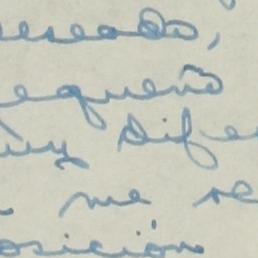 deseado,
equeño
uy dife
me re
osición